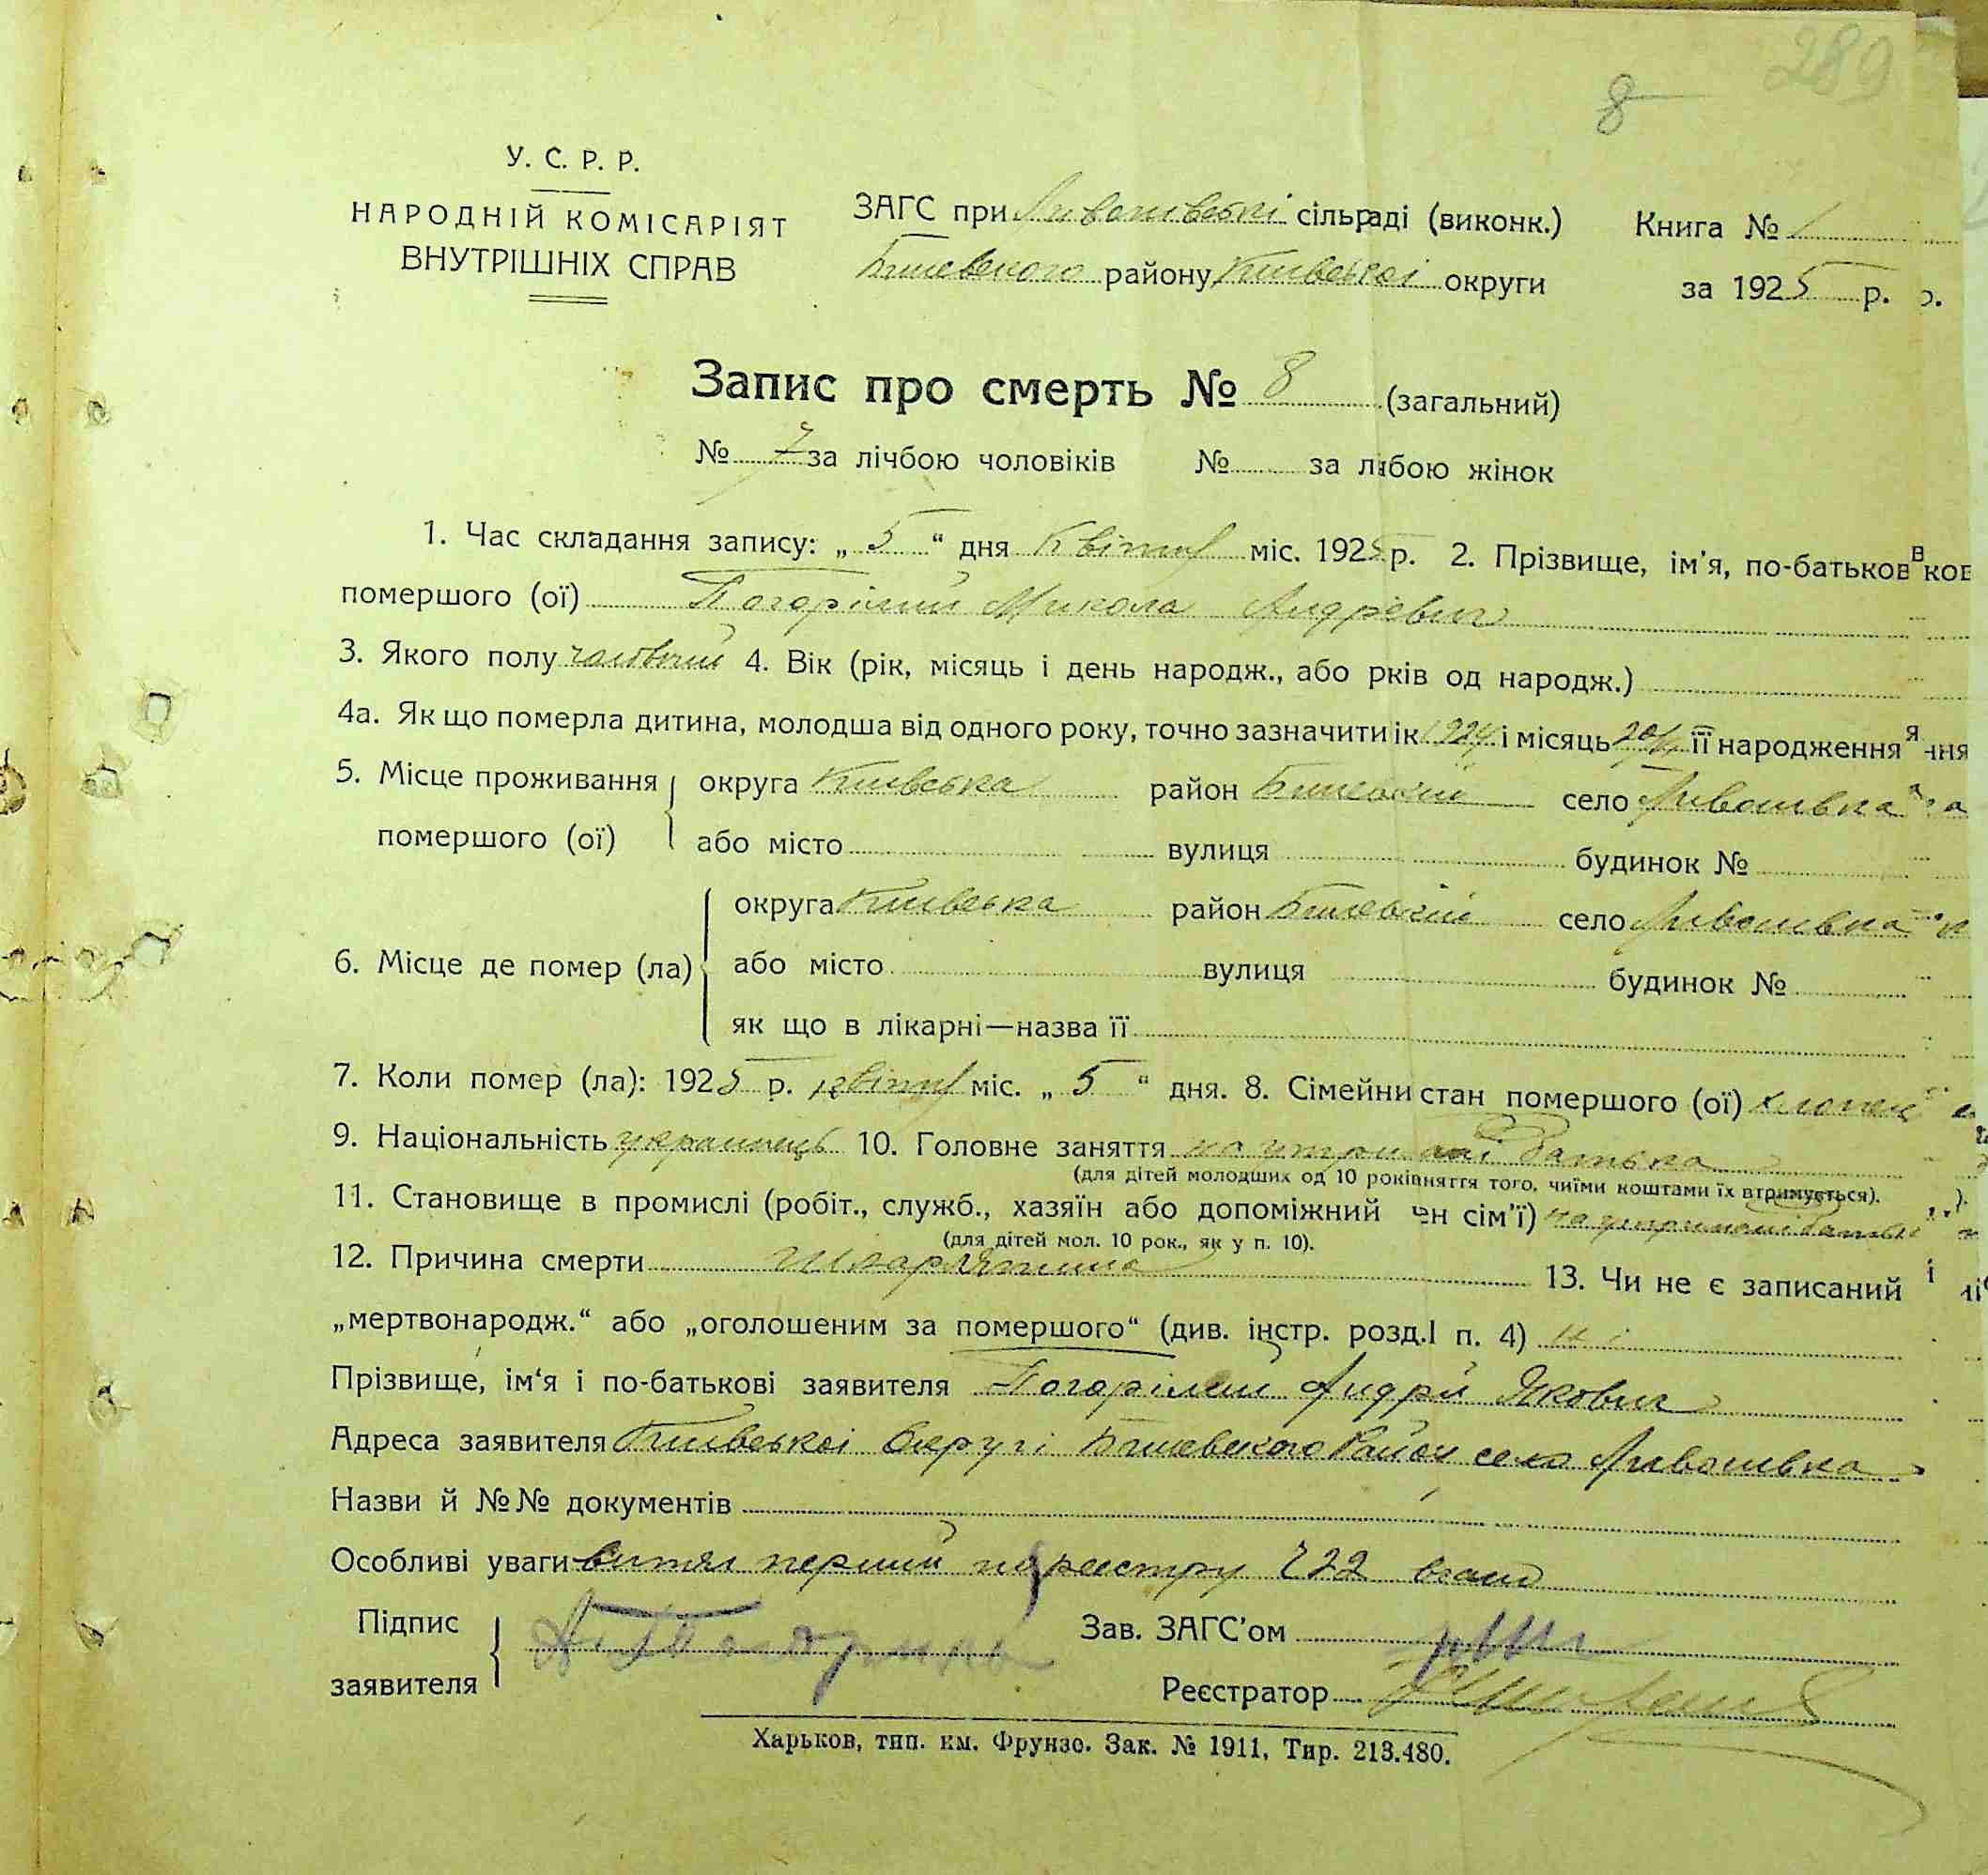 289
8
У. С. Р. Р.
НАРОДНІЙ КОМІСАРІЯТ
ВНУТРІШНІХ СПРАВ
ЗАГС при Липоівські сільраді (виконк.)
Бишевского району Київської округи
Книга № 1
за 1925 р.
Запис про смерть № 8 (загальний)
№ 7 за лічбою чоловіків № за лічбою жінок
1. Час складання запису: „ 5 “ дня Квітня міс. 1925 р. 2. Прізвище, ім'я, по-батьков
помершого (ої) Погорілий Микола Андрієвич
3. Якого полу чоловічий 4. Вік (рік, місяць і день народж., або рків од народж.)
4а. Як що померла дитина, молодша від одного року, точно зазначити ік 1924 і місяць 20/ її народження
5. Місце проживання помершого (ої) округа Київська район Бишевский село
або місто вулиця будинок №
6. Місце де помер (ла) округа Київська район Бишевский село
або місто вулиця будинок №
як що в лікарні—назва її
7. Коли помер (ла): 1925 р. квітня міс. „ 5 “ дня. 8. Сімейни стан помершого (ої) хлопец
9. Національність украинець 10. Головне заняття на утриманні батька
(для дітей молодших од 10 рокі няття того, чиїми коштами їх втримується).
11. Становище в промислі (робіт., служб., хазяїн або допоміжний ен сім'ї) на утриманні батька
(для дітей мол. 10 рок., як у п. 10).
12. Причина смерти Шкарлятина 13. Чи не є записаний
„мертвонародж.“ або „оголошеним за помершого“ (див. інстр. розд. І п. 4) ні
Прізвище, ім‘я і по-батькові заявителя Погорілий Андрій Якович
Адреса заявителя Київської Округі Бишевского Район село
Назви й №№ документів
Особливі уваги витяг перший по реестру 722
Підпис заявителя
Зав. ЗАГС'ом
Реєстратор
Харьков, тип. им. Фрунзе. Зак. № 1911, Тир. 213.480.